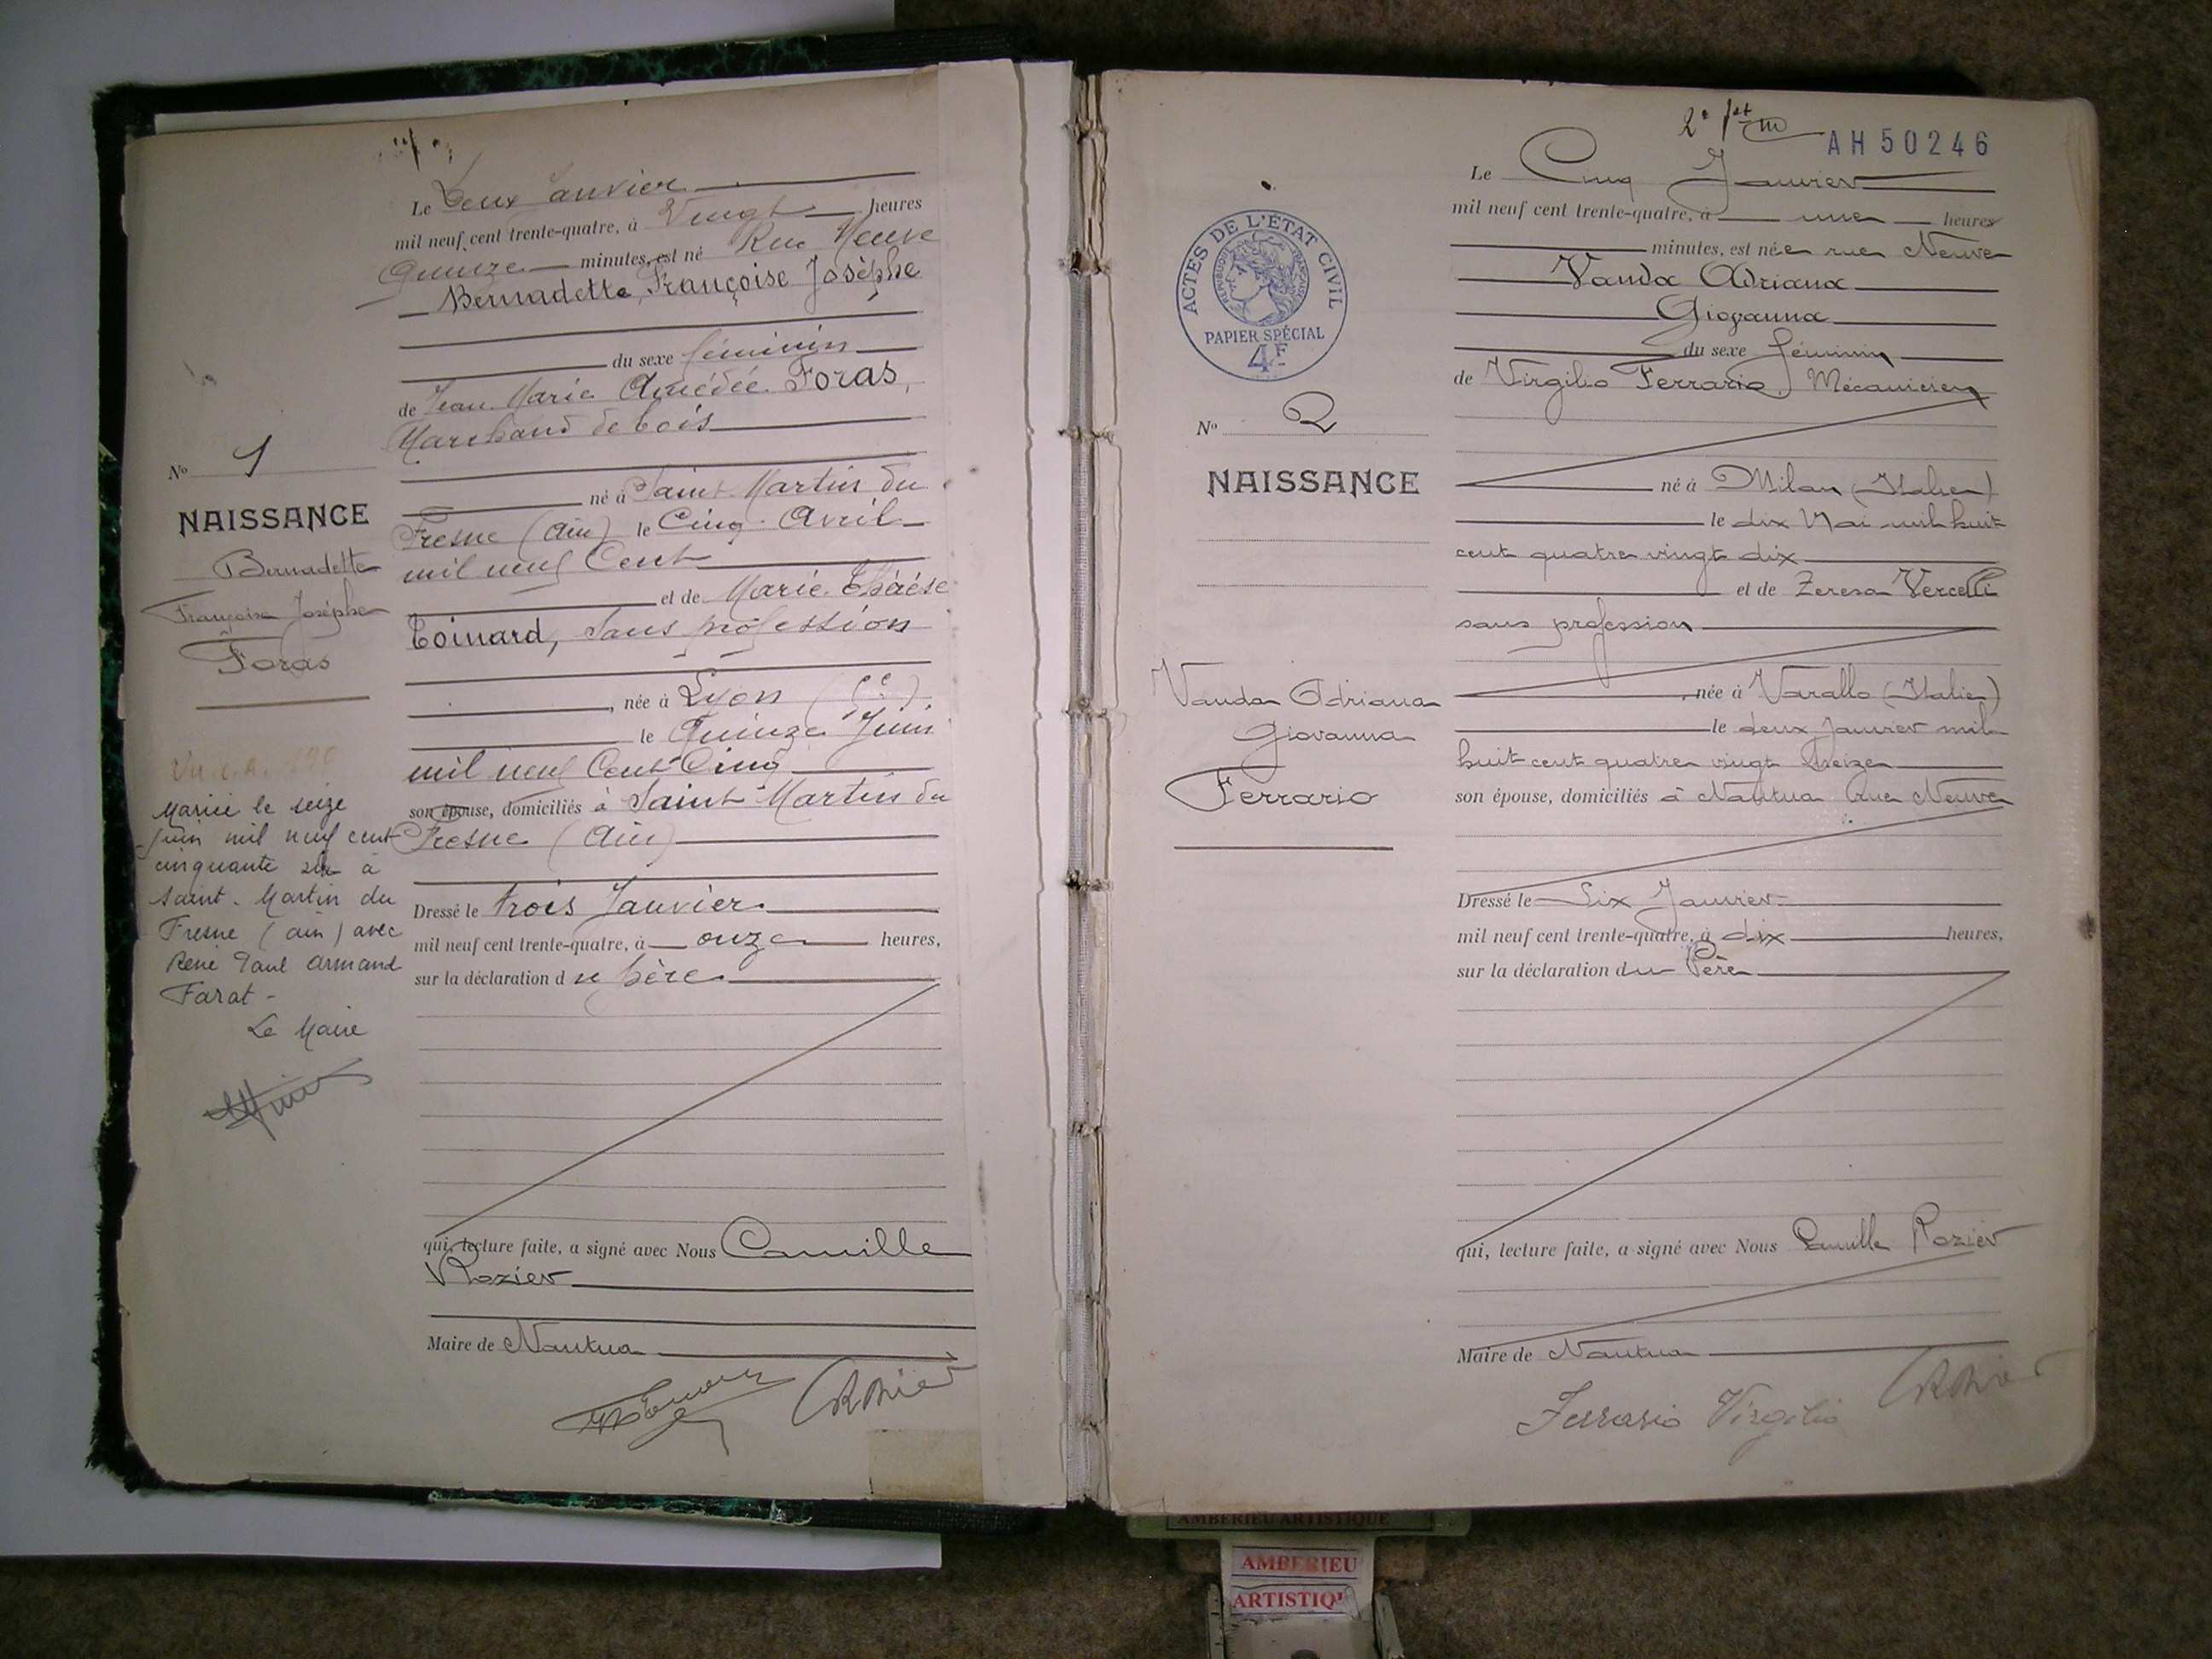 Le Deux Janvier
mil neuf cent trente-quatre, à Vingt heures
Quinze minutes, est né Rue Neuve
Bernadette, Françoise Josèphe
du sexe féminin
de Jean Marie Amédée Foras,
Marchand de bois
né à Saint Martin du
Fresne (Ain) le Cinq Avril
mil neuf Cent
et de Marie Thérèse
Toinard, Sans profession
, née à Lyon
le Quinze Juin
mil neuf Cent Cinq
son épouse, domiciliés à Saint Martin du
Fresne (Ain)
Dressé le trois Janvier
mil neuf cent trente-quatre, à onze heures,
sur la déclaration du père
qui, lecture faite, a signé avec Nous Camille
Rozier
Maire de Nantua
CRozier
No 1
NAISSANCE
Bernadette
Françoise Josèphe
Foras
Mariée le seize
juin mil neuf cent
cinquante six à
Saint-Martin du
Fresne (ain) avec
René Paul Armand
Farat -
Le Maire
AH50246
Le Cinq Janvier
mil neuf cent trente-quatre, à une heures
minutes, est née rue Neuve
Vanda Adriana
Giovanna
du sexe féminin
de Virgilio Ferrario, Mécanicien
né à Milan (Italie)
le dix Mai mil huit
cent quatre vingt dix
et de Teresa Vercelli
sans profession
, née à Varallo (Italie)
le deux Janvier mil
huit cent quatre vingt treize
son épouse, domiciliés à Nantua rue Neuve
Dressé le Six Janvier
mil neuf cent trente-quatre, à dix heures,
sur la déclaration du Père
qui, lecture faite, a signé avec Nous Camille Rozier
Maire de Nantua
Ferrario Virgilio CRozier
ACTES DE L'ÉTAT CIVIL
RÉPUBLIQUE FRANÇAISE
PAPIER SPÉCIAL
4F
No 2
NAISSANCE
Vanda Adriana
Giovanna
Ferrario
AMBERIEU ARTISTIQUE
AMBERIEU
ARTISTIQU